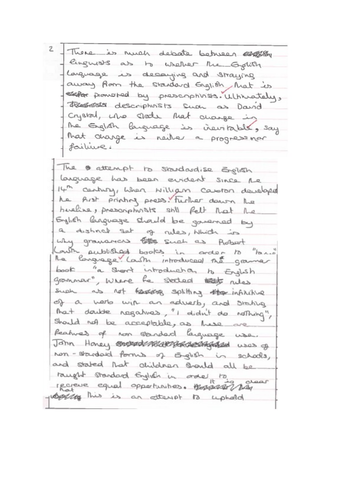 2
There is much debate between
linguists as to whether the English
language is decaying and straying
away from the standard English that is
promoted by prescriptivists. Ultimately,
descriptivists such as David
Crystal, who state that change in
the English language is inevitable, say
that change is neither a progress nor
failure.
The attempt to standardise English
language has been evident since the
14th century, when William Caxton developed
the first printing press. Further down the
timeline, prescriptivists still felt that the
English language should be governed by
a distinct set of rules, which is
why grammarians such as Robert
Lowth published books in order to
the language. Lowth introduced the grammar
book "a short introduction to English
grammar", where he stated rules
such as not splitting infinitive
of a word with an adverb, and stating
that double negatives, "I didn't do nothing",
should not be acceptable, as these are
features of non standard language use.
John Honey uses of
non-standard forms of English in schools,
and stated that children should all be
taught standard English in order to
receive equal opportunities. it is clear
that this is an attempt to uphold